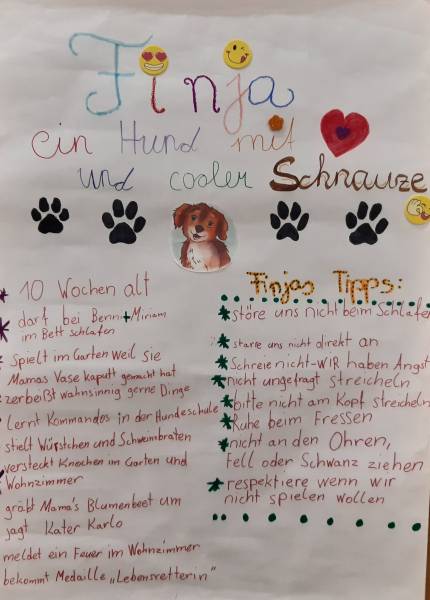 Finja
ein Hund mit
und cooler Schnauze
10 Wochen alt
darf bei Benn + Miriam
im Bett schlafen
Spielt im Garten weil sie
Mamas Vase kaputt gemacht hat
zerbeißt wahnsinnig gerne Dinge
Lernt Kommandos in der Hundeschule
stielt Würstchen und Schweinbraten
versteckt Knochen im Garten und
Wohnzimmer
gräbt Mama's Blumenbeet um
jagt Kater Karlo
meldet ein Feuer im Wohnzimmer
bekommt Medaille „Lebensretterin"
Finjas Tipps:
störe uns nicht beim Schlafen
starre uns nicht direkt an
Schreie nicht-WIR haben Angst
nicht ungefragt streicheln
bitte nicht am Kopf streicheln
Ruhe beim Fressen
nicht an den Ohren,
Fell oder Schwanz ziehen
respektiere wenn wir
nicht spielen wollen